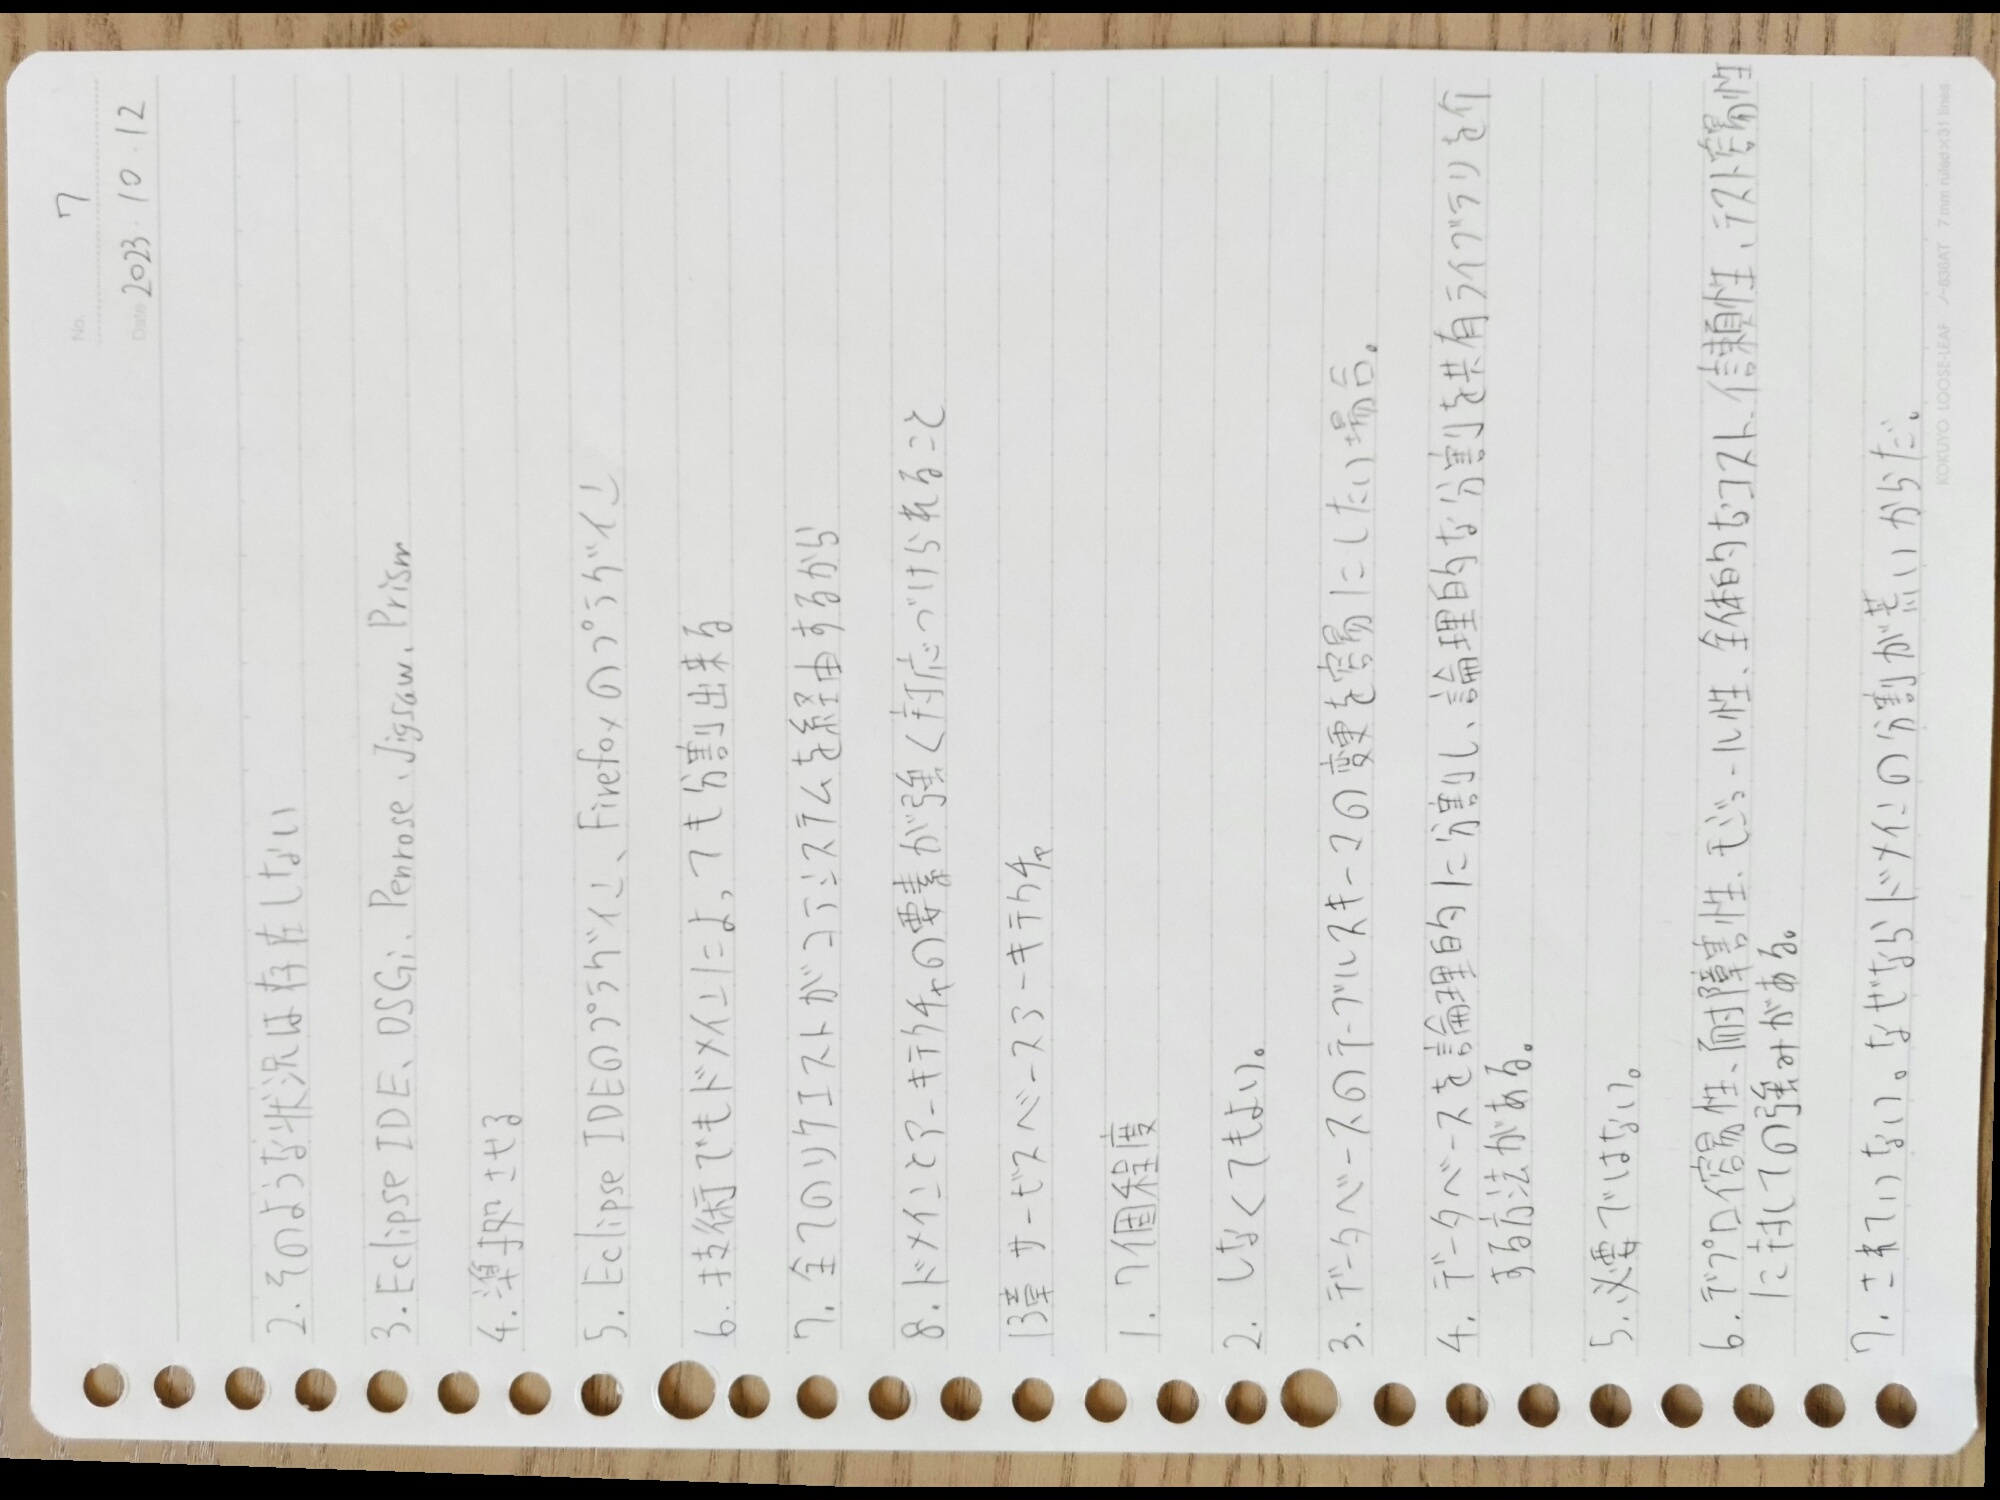 No. 7
Date 2023・10・12
2. そのような状況は存在しない
3. Eclipse IDE、OSGi、Penrose、Jigsaw、Prism
4. 準拠させる
5. Eclipse IDEのプラグイン、Firefoxのプラグイン
6. 技術でもドメインによっても分割出来る
7. 全てのリクエストがコアシステムを経由するから
8. ドメインとアーキテクチャの要素が強く対応づけられること
13章 サービスベースアーキテクチャ
1. 7個程度
2. しなくてもよい。
3. データベースのテーブルスキーマの変更を容易にしたい場合。
4. データベースを論理的に分割し、論理的な分割を共有ライブラリを介
する方法がある。
5. 必要ではない。
6. デプロイ容易性、耐障害性、モジュール性、全体的なコスト、信頼性、テスト容易性
に対しての強みがある。
7. されていない。なぜならドメインの分割が荒いからだ。
KOKUYO LOOSE-LEAF ノ-836AT 7 mm ruled×31 lines